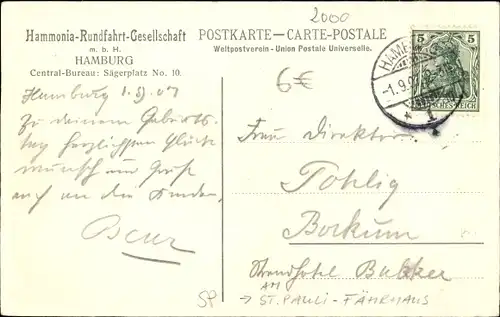 2000
Hammonia-Rundfahrt-Gesellschaft
m. b. H.
HAMBURG
Central-Bureau: Sägerplatz No. 10.
POSTKARTE — CARTE-POSTALE
Weltpostverein - Union Postale Universelle.
5 5
HAMB
-1.9.0
* 1
DEUTSCHES REICH
6€
Hamburg 1.9.07
Zu deinem Geburts-
tag herzlichsten Glück
wunsch und Gruß
auch an die Kinder.
Frau Direktor
Pohlig
Borkum
Strandhotel Bakker
SP
→ ST. PAULI - FÄHRHAUS
AM